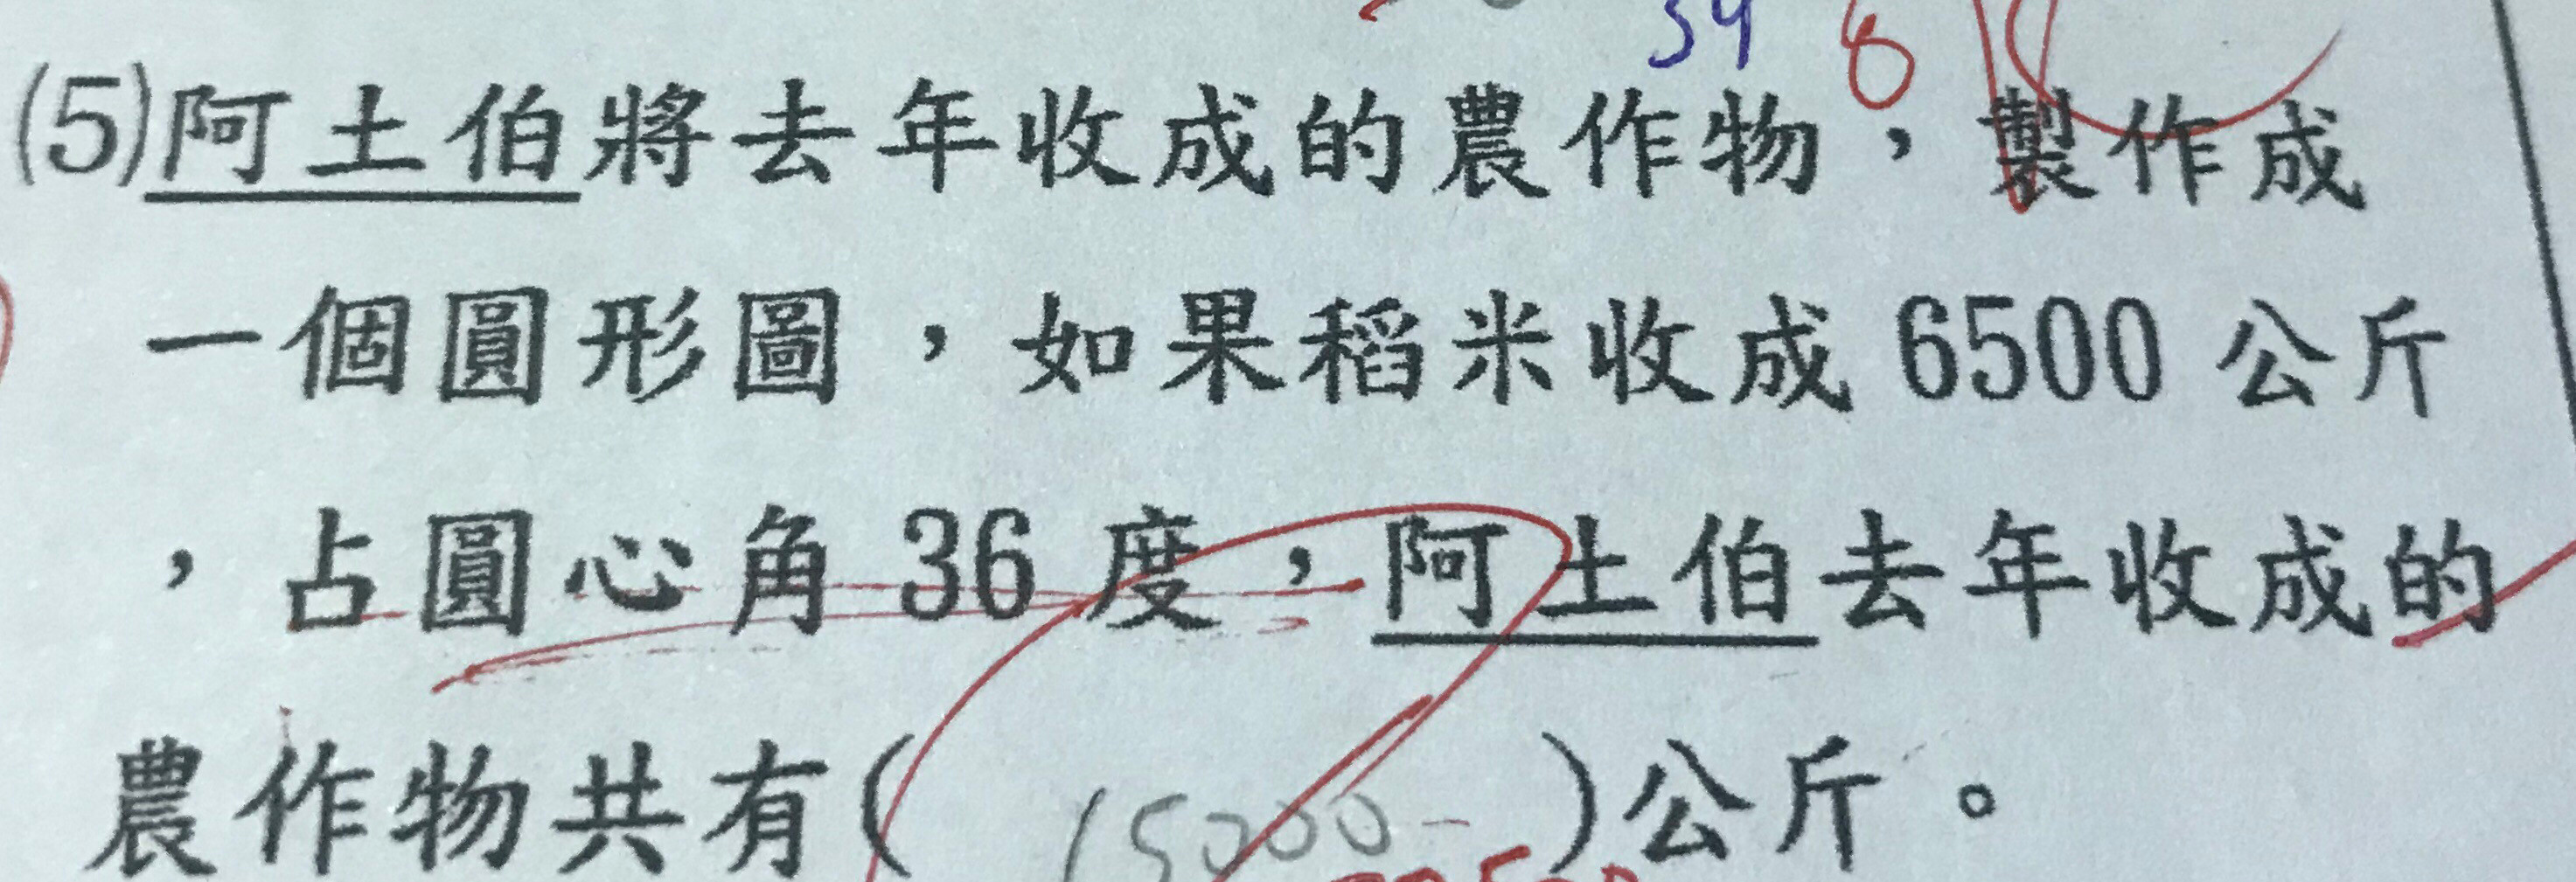 34 8
(5)阿土伯將去年收成的農作物，製作成
一個圓形圖，如果稻米收成6500公斤
，占圓心角36度，阿土伯去年收成的
農作物共有( 15000 )公斤。